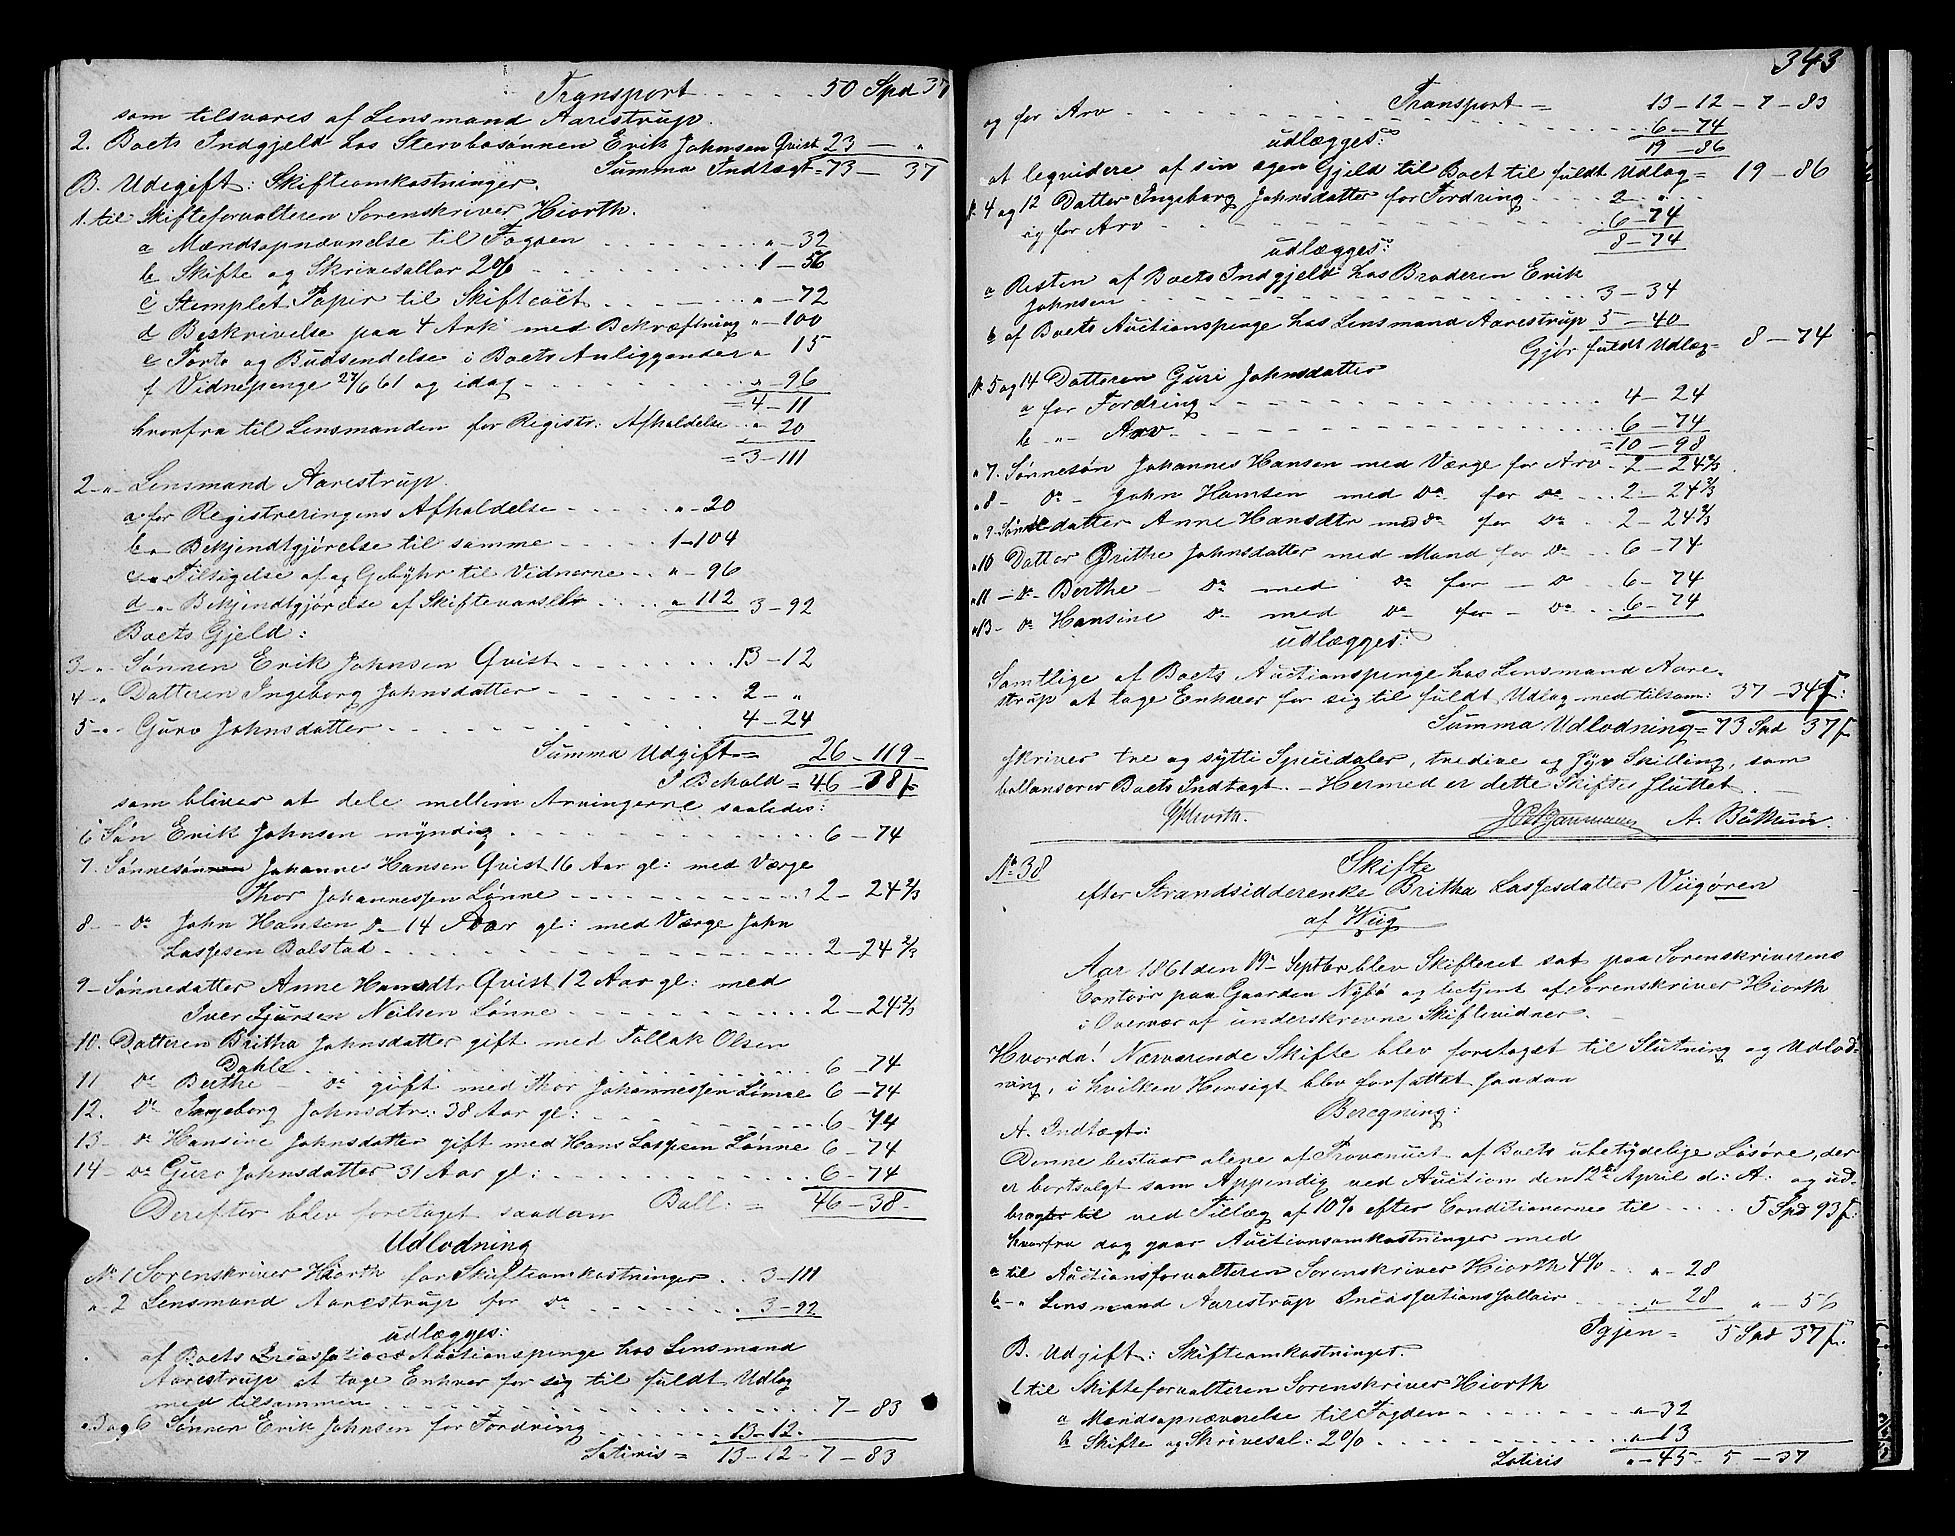 Transport . . . . . 50 Spd 37
som tilsvares af Lensmand Aarestrup.
2. Boets Indgjeld hos Stervbosønnen Erik Johnsen Qvist 23 — "
Summa Indtægt = 73 — 37
B. Udgift: Skifteomkostninger.
1. til Skifteforvalteren Sorenskriver Hiorth.
a Mændsopnævnelse til Fogden . . . . . . . " — 32
b Skifte og Skrivesallar 2% . . . . . . . . 1 — 56
c Stemplet Papir til Skiftet . . . . . . . . " — 72
d Beskrivelse paa 4 Ark med Bekræftning " — 100
e Porto og Budsendelse i Boets Anliggender " 15
f Vidnepenge 27/6 61 og idag . . . . . . . . " — 96
= 4 — 11
hvorfra til Lensmanden for Registr: Afholdelse . . " 20
= 3 — 111
2 — " — Lensmand Aarestrup.
a for Registreringens Afholdelse . . . . . . " — 20
b " — Bekjendtgjørelse til samme . . . . . 1 — 104
c " — Tilsigelse af og Gebyhr til Vidnerne . . " — 96
d " — Bekjendtgjørelse af Skiftevarsel . . . . " 112 3 — 92
Boets Gjeld:
3 — " — Sønnen Erik Johnsen Qvist . . . . . . . . 13 — 12
4 — " Datteren Ingeborg Johnsdatter . . . . . . . 2 — "
5 — " — Guro Johnsdatter . . . . . . . . . . . . 4 — 24
Summa Udgift = 26 — 119 —
I Behold = 46 — 38
som bliver at dele mellem Arvingerne saaledes:
6 Søn Erik Johnsen myndig . . . . . . . . . . . 6 — 74
7. Sønnesøn Johannes Hansen Qvist 16 Aar gl: med Værge
Thor Johannessen Lønne . . . . . . . . . 2 — 24 2/3
8 — do John Hansen do — 14 Aar gl: med Værge John
Lassesen Bolstad . . . . . . . . . . . . . 2 — 24 2/3
9 — Sønnedatter Anne Hansdtr Qvist 12 Aar gl: med
Iver Sjursen Neilsen Lønne . . . . . . . . . 2 — 24 2/3
10. Datteren Britha Johnsdatter gift med Tollak Olsen
Dahle . . . . . . . . . . . . . . . . . 6 — 74
11 do Berthe do gift med Thor Johannessen Lønne 6 — 74
12. do Ingeborg Johnsdtr: 38 Aar gl: . . . . . . . 6 — 74
13 — do Hansine Johnsdatter gift med Hans Lassesen Lønne 6 — 74
14 — do Guro Johnsdatter 31 Aar gl: . . . . . . . . 6 — 74
Ball: = 46 — 38 —
Derefter blev foretaget saadan
Udlodning
No 1 Sorenskriver Hiorth for Skifteomkostninger . . 3 — 111
" 2 Lensmand Aarestrup for do . . . . . . . 3 — 92
udlægges:
af Boets Auctionspenge hos Lensmand
Aarestrup at tage Enhver for sig til fuldt Udlæg
med tilsammen . . . . . . . . . . . . . . . . 7 — 83
" 3 og 6 Sønnen Erik Johnsen for Fordring . . . . . . 13 — 12.
Lateris = 13 — 12 — 7 — 83
343
Transport = 13 — 12 — 7 — 83
og for Arv . . . . . . . . . . . . . . . . . 6 — 74
19 — 86
udlægges:
at leqvidere af sin egen Gjeld til Boet til fuldt Udlæg = 19 — 86
No 4 og 12 Datter Ingeborg Johnsdatter for Fordring . . . . 2 — " . . .
og for Arv . . . . . . . . . . . . . . . . 6 — 74
8 — 74
udlægges:
a Resten af Boets Indgjeld hos Broderen Erik
Johnsen . . . . . . . . . . . . . . . . . 3 — 34
b af Boets Auctionspenge hos Lensmand Aarestrup 5 — 40
Gjør fuldt Udlæg = 8 — 74
No 5 og 14 Datteren Guri Johnsdatter
a for Fordring . . . . . . . . . . . . . . . 4 — 24
b " — Arv . . . . . . . . . . . . . . . . . 6 — 74
= 10 — 98
" 7. Sønnesøn Johannes Hansen med Værge for Arv . 2 — 24 2/3
" 8 — do — John Hansen med do for do . . . 2 — 24 2/3
" 9 — Sønnedatter Anne Hansdtr med do for do . . 2 — 24 2/3
" 10 Datter Brithe Johnsdatter med Mand for do . . 6 — 74
" 11 — do — Berthe — do med do for — do . . 6 — 74
" 13 — do Hansine do — med do — for — do . . 6 — 74
udlægges:
Samtlige af Boets Auctionspenge hos Lensmand Aare-
strup at tage Enhver for sig til fuldt Udlæg med tilsam: 37 — 34
Summa Udlodning = 73 Spd 37 s
skriver tre og sytti Speciedaler, tredive og syv Skilling, som
ballanserer Boets Indtægt. — Hermed er dette Skifte sluttet.
Hiorth. A. Böthun.
No 38 Skifte
efter Strandsidderenke Britha Lassesdatter Viigøren
af Wiig
Aar 1861 den 19de Septbr blev Skifteret sat paa Sorenskriverens
Contoir paa Gaarden Nybø og betjent af Sorenskriver Hiorth
i Overvær af underskrevne Skiftevidner. —
Hvorda! Nærværende Skifte blev foretaget til Slutning og Udlod-
ning, i hvilken Hensigt blev forfattet saadan
Beregning:
A. Indtægt:
Denne bestaar alene af Provenuet af Boets ubetydelige Løsøre, der
er bortsolgt som Appendix ved Auction den 12te April d: A: og ud-
bragt til ved Tillæg af 10% efter Conditionerne til . . . . . 5 Spd 93 s.
hvorfra dog gaar Auctionsomkostninger med
a til Auctionsforvalteren Sorenskriver Hiorth 4% . . " — 28
b — " Lensmand Aarestrup Incassationssallair . . . . " — 28 " — 56
Igjen = 5 Spd 37 s.
B. Udgift: Skifteomkostninger.
1 til Skifteforvalteren Sorenskriver Hiorth
a Mændsopnævnelse til Fogden . . . . . . . " — 32
b Skifte og Skrivesal: 2% . . . . . . . . . . " — 13
Lateris " — 45 — 5 — 37